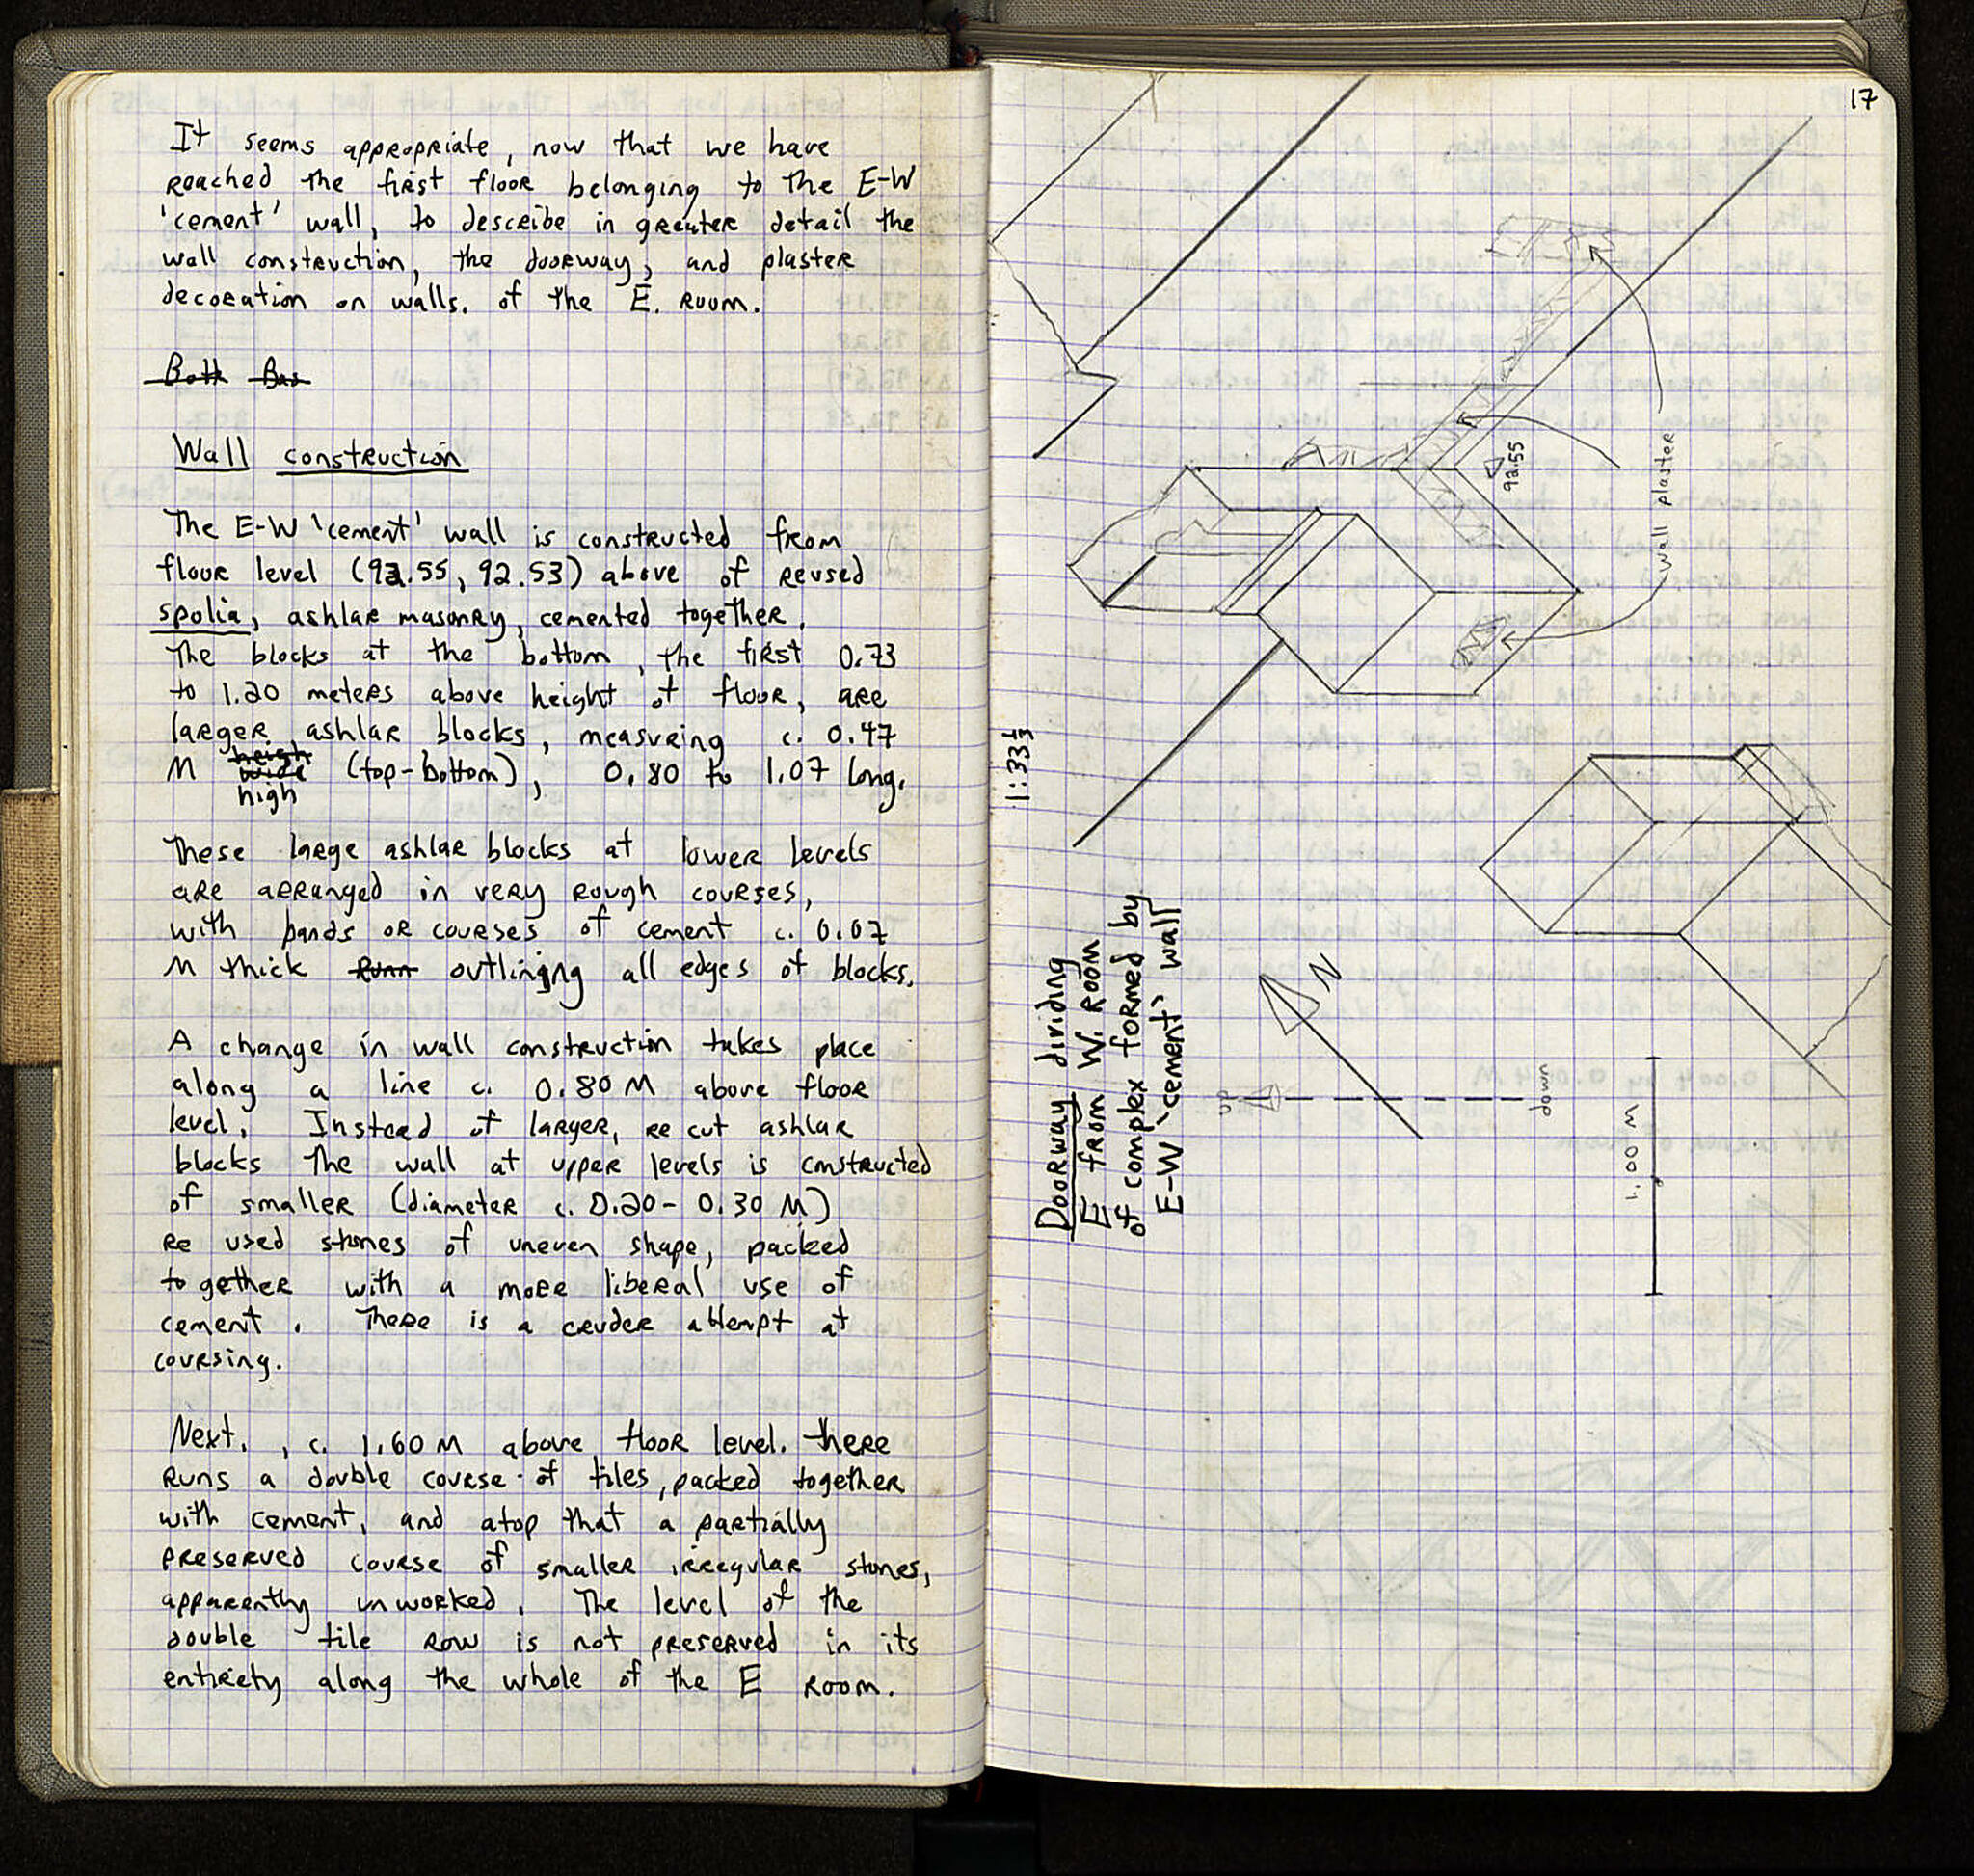 It seems appropriate, now that we have
reached the first floor belonging to the E-W
'cement' wall, to describe in greater detail the
wall construction, the doorway, and plaster
decoration on walls. of the E. Room.
Both Bas
Wall construction
The E-W 'cement' wall is constructed from
floor level (92.55, 92.53) above of reused
spolia, ashlar masonry, cemented together.
The blocks at the bottom, the first 0.73
to 1.20 meters above height of floor, are
larger ashlar blocks, measuring c. 0.47
M heigh wide high (top-bottom), 0.80 to 1.07 long.
These large ashlar blocks at lower levels
are arranged in very rough courses,
with bands or courses of cement c. 0.07
M thick Runn outlining all edges of blocks.
A change in wall construction takes place
along a line c. 0.80 M above floor
level. Instead of larger, re cut ashlar
blocks the wall at upper levels is constructed
of smaller (diameter c. 0.20 - 0.30 M)
re used stones of uneven shape, packed
together with a more liberal use of
cement. There is a cruder attempt at
coursing.
Next, , c. 1.60 M above floor level. there
runs a double course of tiles, packed together
with cement, and atop that a partially
preserved course of smaller irregular stones,
apparently unworked. The level of the
double tile row is not preserved in its
entirety along the whole of the E Room.
17
92.55
wall plaster
1:33⅓
Doorway dividing
E from W. Room
of complex formed by
E-W 'cement' wall
N
up
down
1.00 M